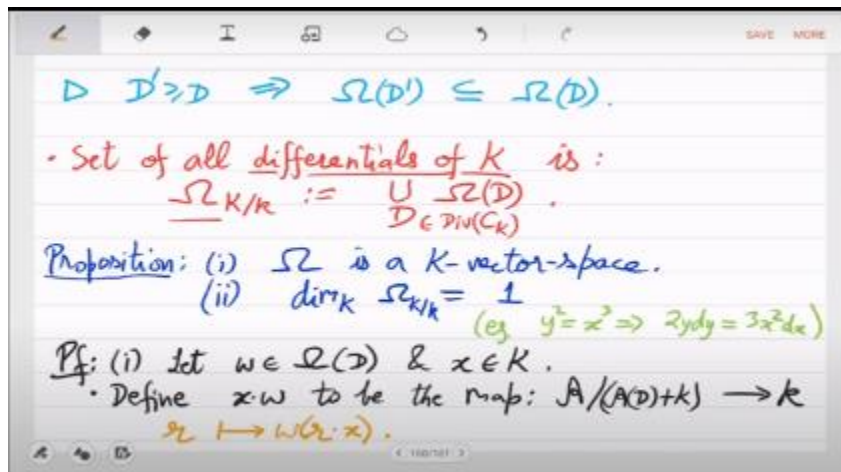 SAVE MORE
▷ D'≥D ⇒ Ω(D') ⊆ Ω(D).
· Set of all differentials of K is:
Ω_{K/k} := ∪_{D∈Div(C_K)} Ω(D).
Proposition: (i) Ω is a K-vector-space.
(ii) dim_K Ω_{K/k} = 1
(eg y²=x³ ⇒ 2ydy = 3x²dx)
Pf: (i) Let w ∈ Ω(D) & x ∈ K.
· Define x·w to be the map: A/(A(D)+K) → k
r ↦ w(r·x).